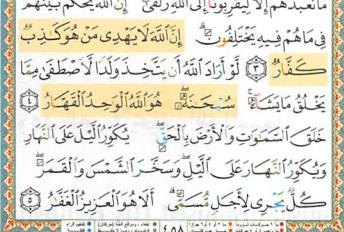 مَا نَعْبُدُهُمْ إِلَّا لِيُقَرِّبُونَا إِلَى اللَّهِ زُلْفَىٰ إِنَّ اللَّهَ يَحْكُمُ بَيْنَهُمْ
فِي مَا هُمْ فِيهِ يَخْتَلِفُونَ ۗ إِنَّ اللَّهَ لَا يَهْدِي مَنْ هُوَ كَاذِبٌ
كَفَّارٌ ٣ لَوْ أَرَادَ اللَّهُ أَنْ يَتَّخِذَ وَلَدًا لَاصْطَفَىٰ مِمَّا
يَخْلُقُ مَا يَشَاءُ ۚ سُبْحَانَهُ ۖ هُوَ اللَّهُ الْوَاحِدُ الْقَهَّارُ ٤
خَلَقَ السَّمَاوَاتِ وَالْأَرْضَ بِالْحَقِّ ۖ يُكَوِّرُ اللَّيْلَ عَلَى النَّهَارِ
وَيُكَوِّرُ النَّهَارَ عَلَى اللَّيْلِ ۖ وَسَخَّرَ الشَّمْسَ وَالْقَمَرَ ۖ
كُلٌّ يَجْرِي لِأَجَلٍ مُسَمًّى ۗ أَلَا هُوَ الْعَزِيزُ الْغَفَّارُ ٥
٤٥٨